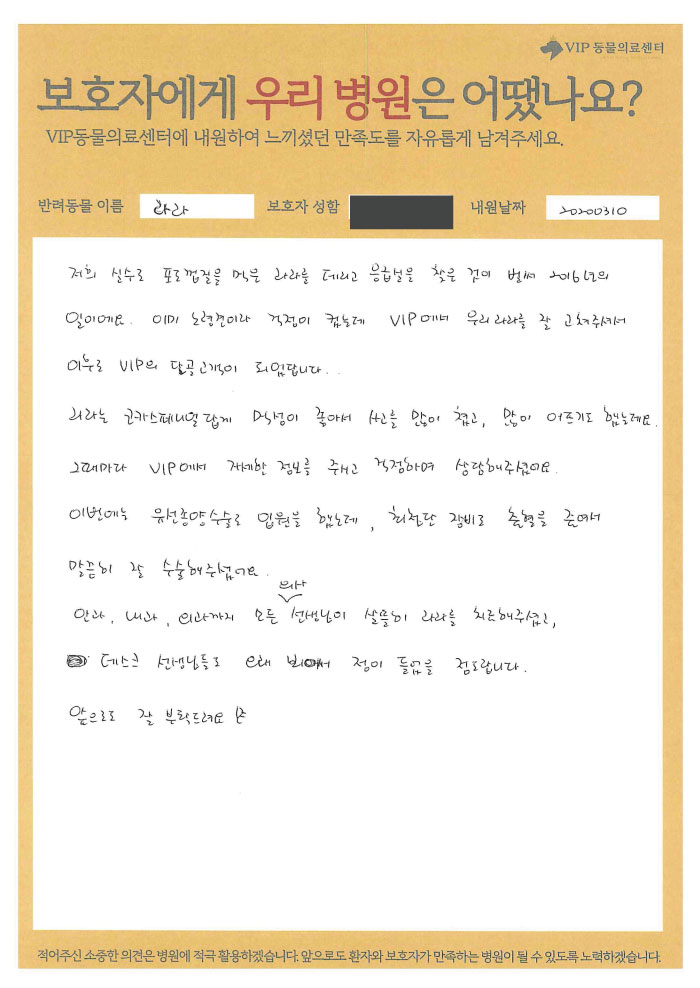 VIP 동물의료센터
보호자에게 우리 병원은 어땠나요?
VIP동물의료센터에 내원하여 느끼셨던 만족도를 자유롭게 남겨주세요.
반려동물 이름 라라 보호자 성함 내원날짜 20200310
저희 실수로 포도껍질을 먹은 라라를 데리고 응급실을 찾은 것이 벌써 2016년의
일이에요. 이미 노령견이라 걱정이 컸는데 VIP에서 우리 라라를 잘 고쳐주셔서
이후로 VIP의 단골고객이 되었답니다..
라라는 코카스패니얼답게 먹성이 좋아서 사고를 많이 쳤고, 많이 아프기도 했는데요.
그때마다 VIP에서 자세한 정보를 주시고 걱정하며 상담해주셨어요.
이번에는 유선종양수술로 입원을 했는데, 최첨단 장비로 출혈을 줄여서
말끔히 잘 수술해주셨어요.
의사
안과, 내과, 외과까지 모든 선생님이 살뜰히 라라를 치료해주셨고,
데스크 선생님들도 오래 뵈어서 정이 들었을 정도랍니다.
앞으로도 잘 부탁드려요
적어주신 소중한 의견은 병원에 적극 활용하겠습니다. 앞으로도 환자와 보호자가 만족하는 병원이 될 수 있도록 노력하겠습니다.